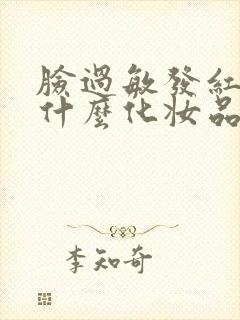 臉過敏發紅
什麼化妝品
李知奇